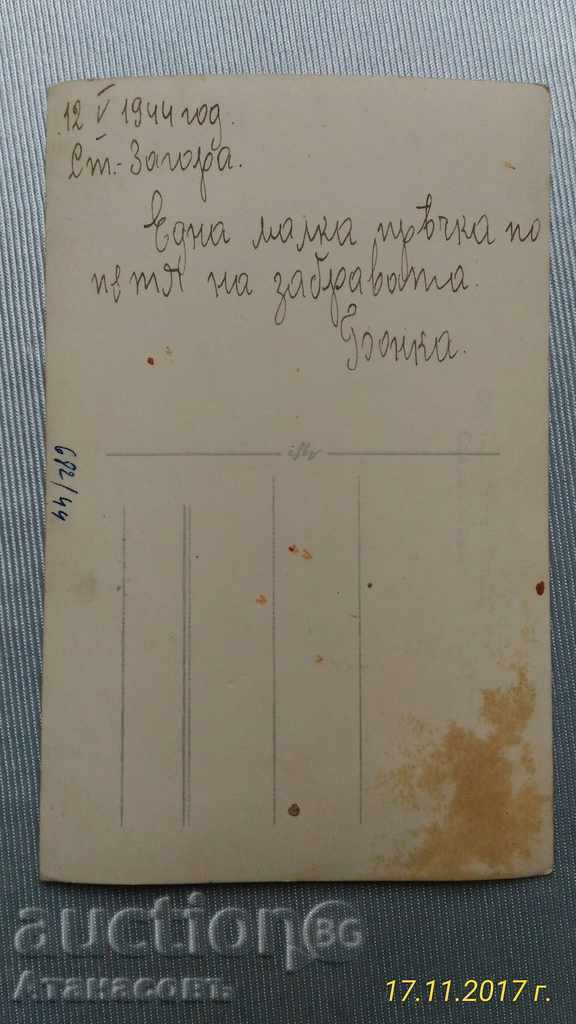 12 V 1944 год.
Ст.-Загора.
Една малка пръчка по
петя на забравата.
Бонка.
682/44
auctionBG
Атанасовъ
17.11.2017 г.